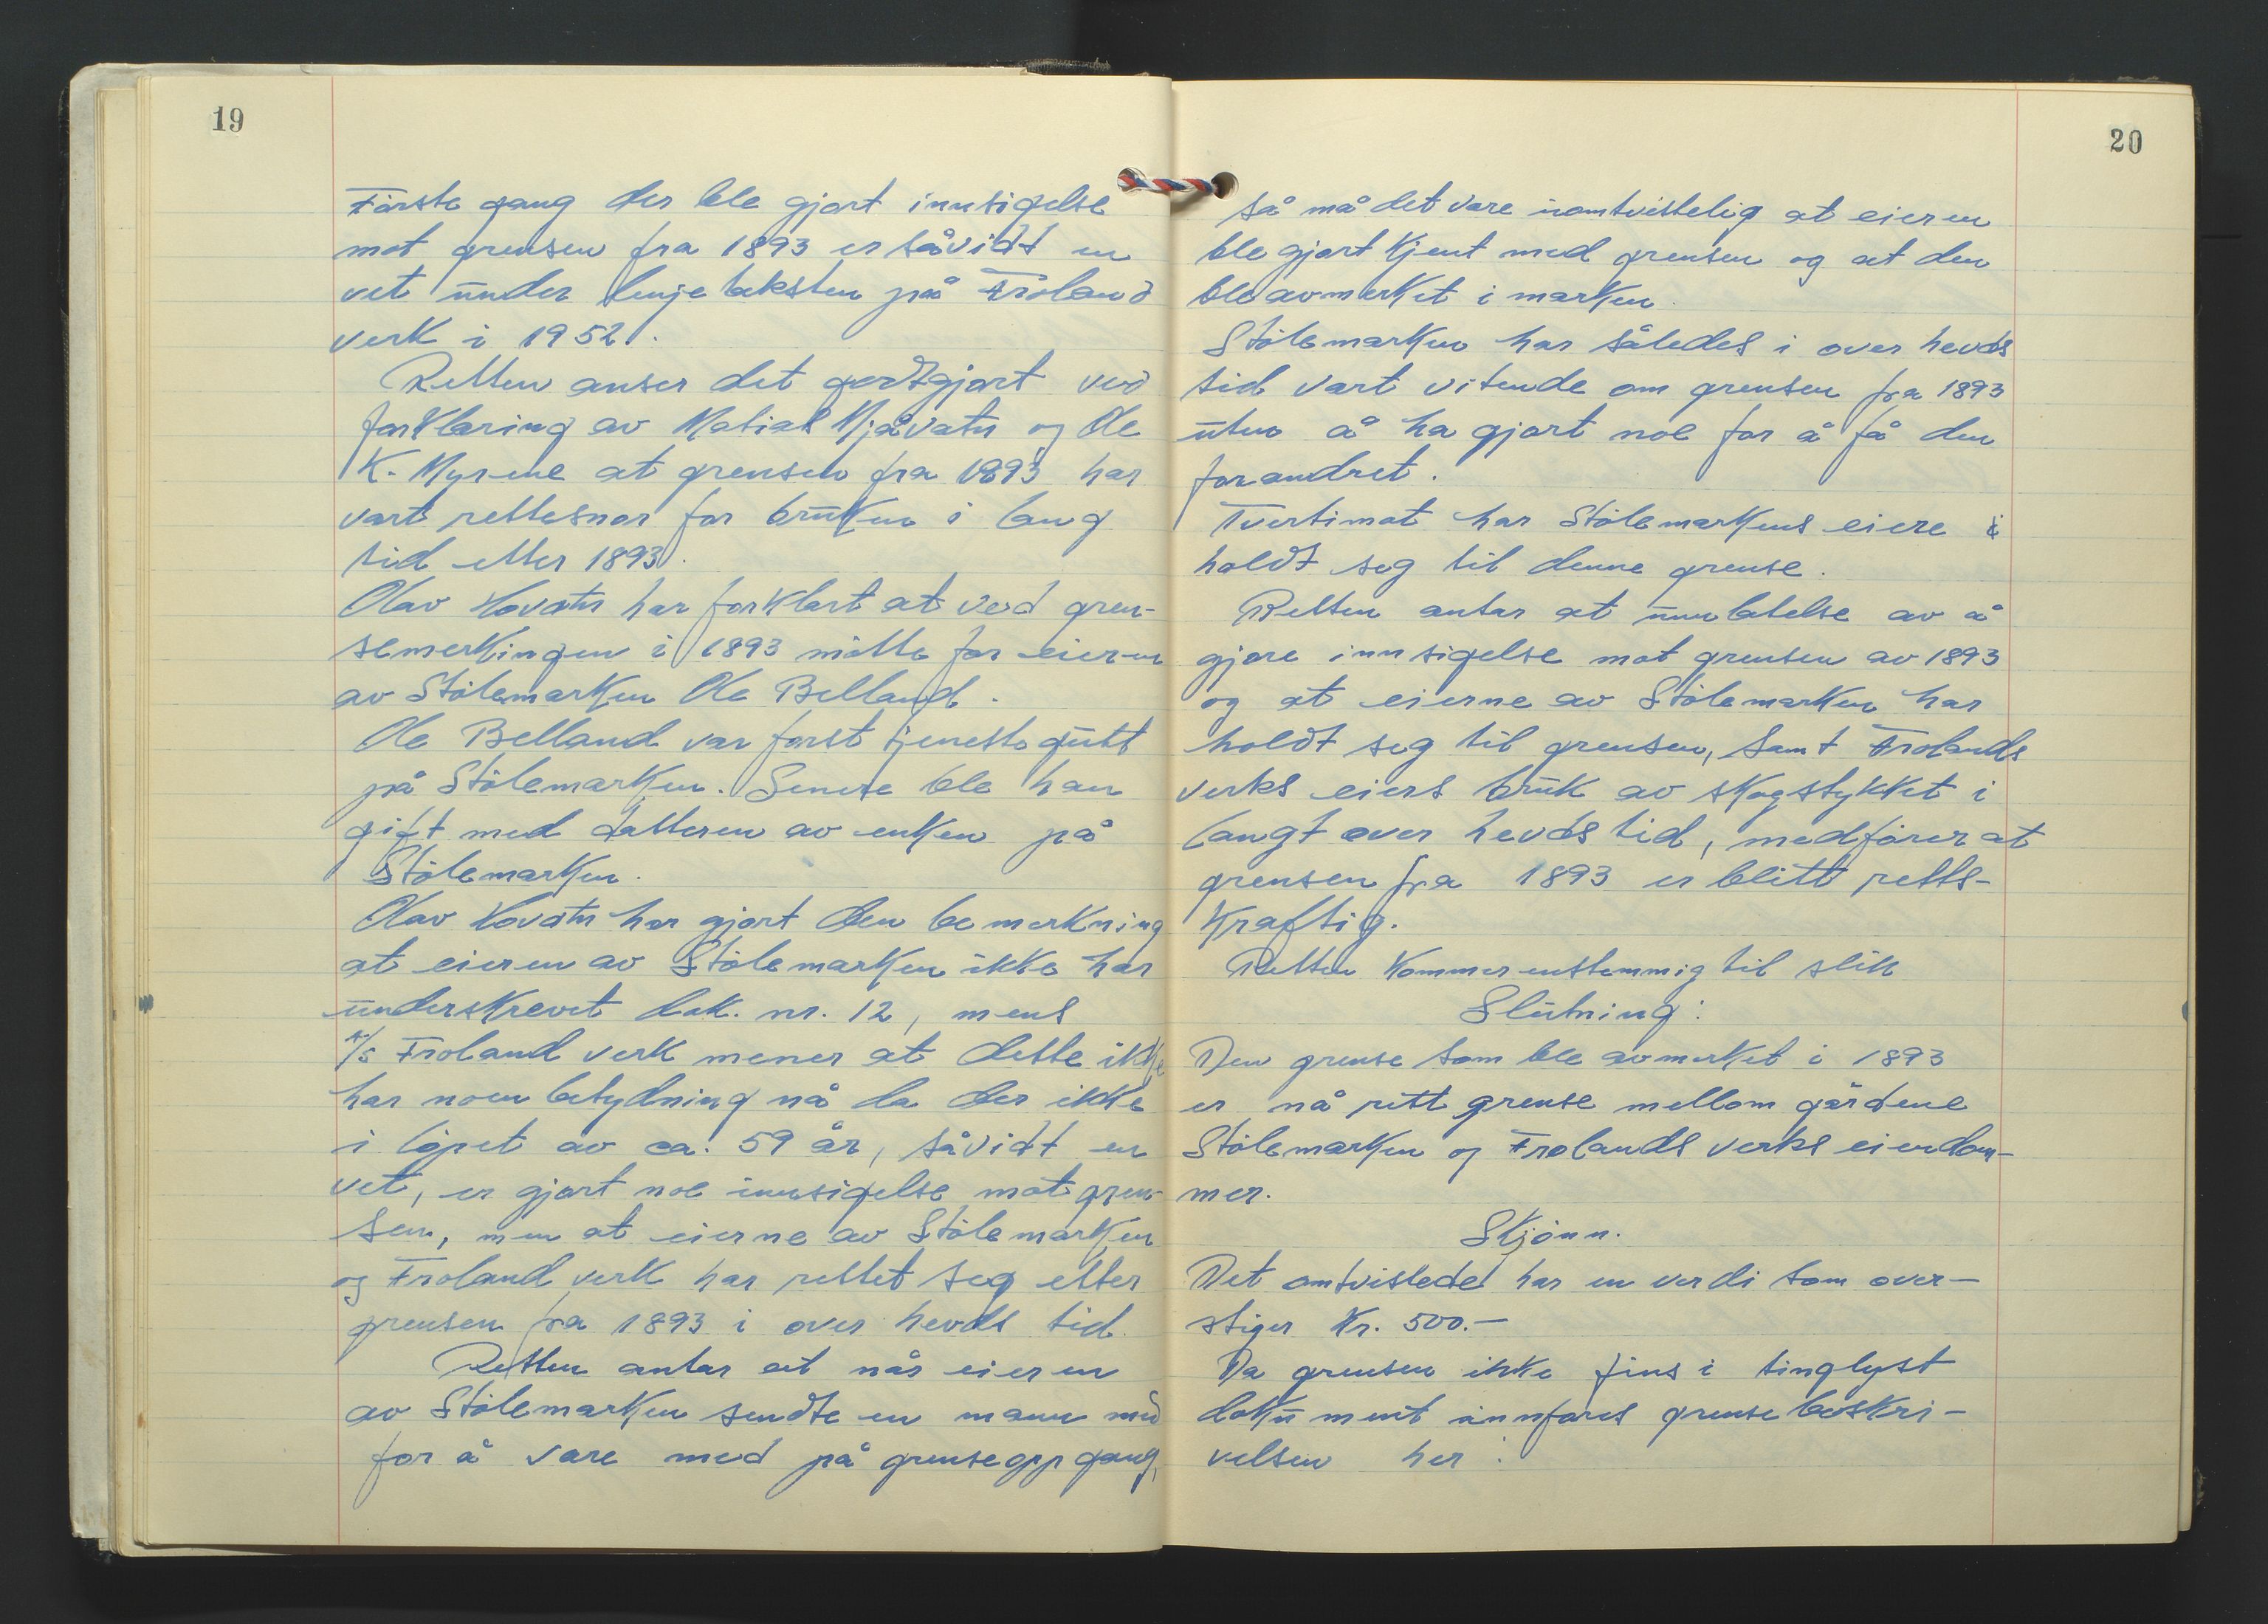 19
Første gang der ble gjort innsigelse
mot grensen fra 1893 er såvidt en
vet under linjetaksten på Froland
verk i 1952.
Retten anser det godtgjort ved
forklaring av Matias Mjåvatn og Ole
K. Myrene at grensen fra 1893 har
vært rettesnor for bruken i lang
tid etter 1893.
Olav Hovatn har forklart at ved gren-
semerkingen i 1893 møtte for eieren
av Stølemarken Ole Belland.
Ole Belland var først tjenestegutt
på Stølemarken. Senere ble han
gift med datteren av enken på
Stølemarken.
Olav Hovatn har gjort den bemerkning
at eieren av Stølemarken ikke har
underskrevet dok. nr. 12, mens
A/S Froland verk mener at dette ikke
har noen betydning nå da der ikke
i løpet av ca. 59 år, såvidt en
vet, er gjort noe innsigelse mot gren-
sen, men at eierne av Stølemarken
og Froland verk har rettet seg etter
grensen fra 1893 i over hevds tid.
Retten antar at når eieren
av Stølemarken sendte en mann med
for å være med på grenseoppgang,
20
så må det være uomtvistelig at eieren
ble gjort kjent med grensen og at den
ble avmerket i marken.
Stølemarken har således i over hevds
tid vært vitende om grensen fra 1893
uten å ha gjort noe for å få den
forandret.
Tvertimot har Stølemarkens eiere
holdt seg til denne grense.
Retten antar at unnlatelse av å
gjøre innsigelse mot grensen av 1893
og at eierne av Stølemarken har
holdt seg til grensen, samt Frolands
verks eiers bruk av skogstykket i
langt over hevds tid, medfører at
grensen fra 1893 er blitt retts-
kraftig.
Retten kommer enstemmig til slik
Slutning:
Den grense som ble avmerket i 1893
er nå rett grense mellom gårdene
Stølemarken og Frolands verks eiendom-
mer.
Skjønn.
Det omtvistede har en verdi som over-
stiger kr. 500.-
Da grensen ikke fins i tinglyst
dokument innføres grensebeskri-
velsen her: